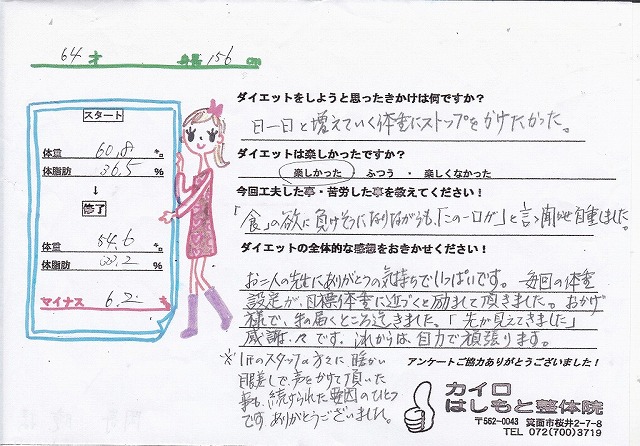 64才 身長156cm
スタート
体重 60.8 kg
体脂肪 36.5 %
↓
終了
体重 54.6 kg
体脂肪 33.2 %
マイナス 6.2 kg
ダイエットをしようと思ったきかけは何ですか？
日一日と増えていく体重にストップをかけたかった。
ダイエットは楽しかったですか？
楽しかった ・ ふつう ・ 楽しくなかった
今回工夫した事・苦労した事を教えてください！
「食」の欲に負けそうになりながらも、「この一口が」と言い聞かせ自重しました。
ダイエットの全体的な感想をおきかせください！
お二人の先生にありがとうの気持ちでいっぱいです。毎回の体重
設定が、目標体重に近づくと励まして頂きました。おかげ
様で、手の届くところ迄きました。「先が見えてきました」
感謝、々です。これからは自力で頑張ります。
※ 他のスタッフの方々に暖かい
眼差しで、声をかけて頂いた
事も、続けられた要因のひとつ
です。ありがとうございました。
アンケートご協力ありがとうございました！
カイロ
はしもと整体院
〒562-0043 箕面市桜井2-7-8
TEL 072(700)3719